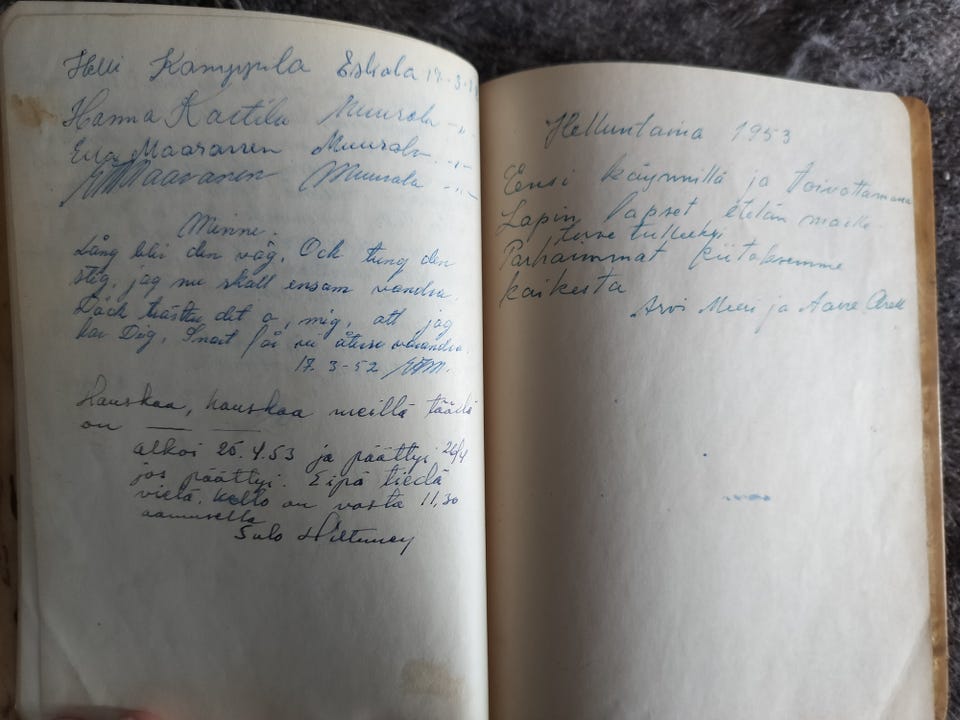 Helli Kamppula Eskola 17-3-
Hanna Kastila Muurola -"-
Eva Maaranen Muurola -"-
Maaranen Muurola -"-
Minne.
Lång blir den väg, Och tung den
stig, jag nu skall ensam vandra.
Däck tröstar det o, mig, att jag
har Dig. Snart få vi återse varandra.
17. 3-52
Hauskaa, hauskaa meillä täällä
on
alkoi 25.4.53 ja päättyi 26/4
jos päättyi. Eipä tiedä
vielä. Kello on vasta 11,30
aamusella
Sulo Hiltunen
Helluntaina 1953
Ensi käynnillä ja toivottamana
Lapin lapset etelän maille
terve tulleeksi
Parhaimmat kiitoksemme
kaikesta
Arvi Meri ja Aarre